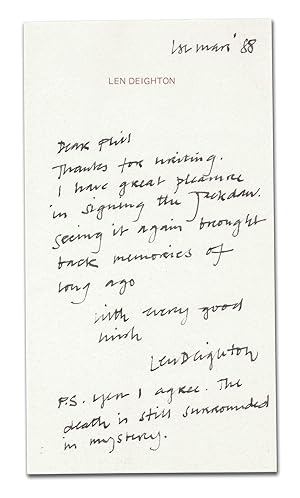 1st mars '88
LEN DEIGHTON
Dear Phil
Thanks for writing.
I have great pleasure
in signing the Jackdaw.
Seeing it again brought
back memories of
long ago
with every good
wish
Len Deighton
P.S. yes I agree. The
death is still surrounded
in mystery.